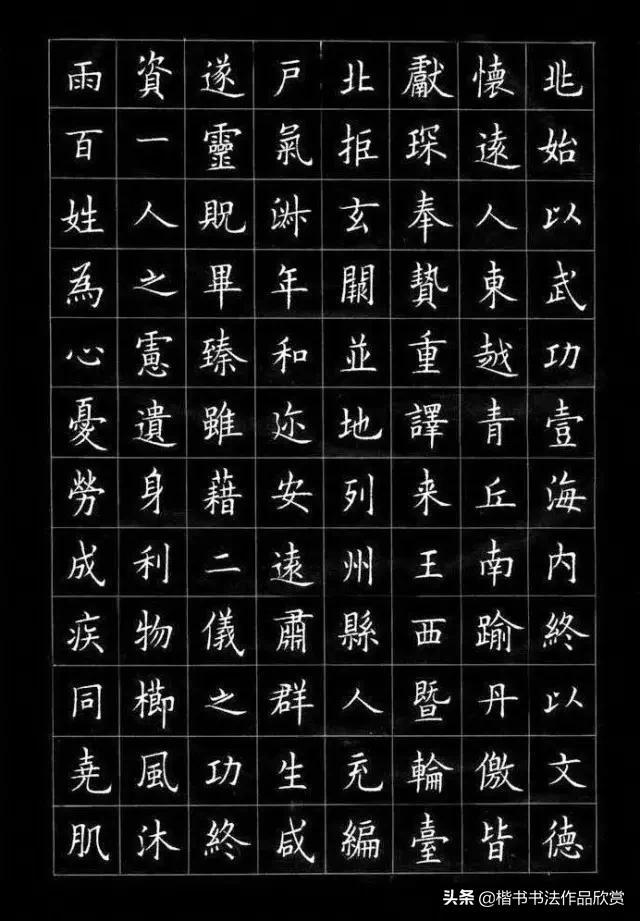 兆始以武功壹海内終以文德
懷遠人東越青丘南踰丹儌皆
獻琛奉贄重譯来王西暨輪臺
北拒玄闕並地列州縣人充編
戶氣淑年和迩安遠肅群生咸
遂靈貺畢臻雖藉二儀之功終
資一人之慮遺身利物櫛風沐
雨百姓為心憂勞成疾同堯肌
头条 @楷书书法作品欣赏